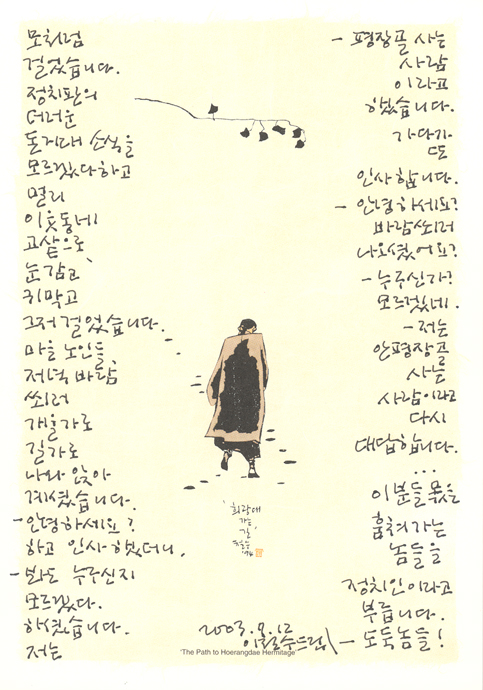 모처럼
걸었습니다.
정치판의
더러운
돈거래 소식을
모르겠다하고
멀리
이웃동네
고샅으로
눈감고,
귀막고
그저 걸었습니다.
마을 노인들,
저녁 바람
쐬러
개울가로
길가로
나와 앉아
계셨습니다.
-안녕하세요?
하고 인사 했더니,
- 봐도 누구신지
모르겠다.
하셨습니다.
저는
- 평장골 사는
사람
이라고
했습니다.
가다가
또
인사합니다.
- 안녕하세요?
바람쐬러
나오셨어요?
- 누구신가?
모르겠네.
- 저는
안평장골
사는
사람이라고
다시
대답합니다.
...
이분들 몫을
훔쳐가는
놈들을
정치인이라고
부릅니다.
- 도둑놈들!
'희랑대
가는
길'
'94
2003.9.12
이철수드림
'The Path to Hoerangdae Hermitage'